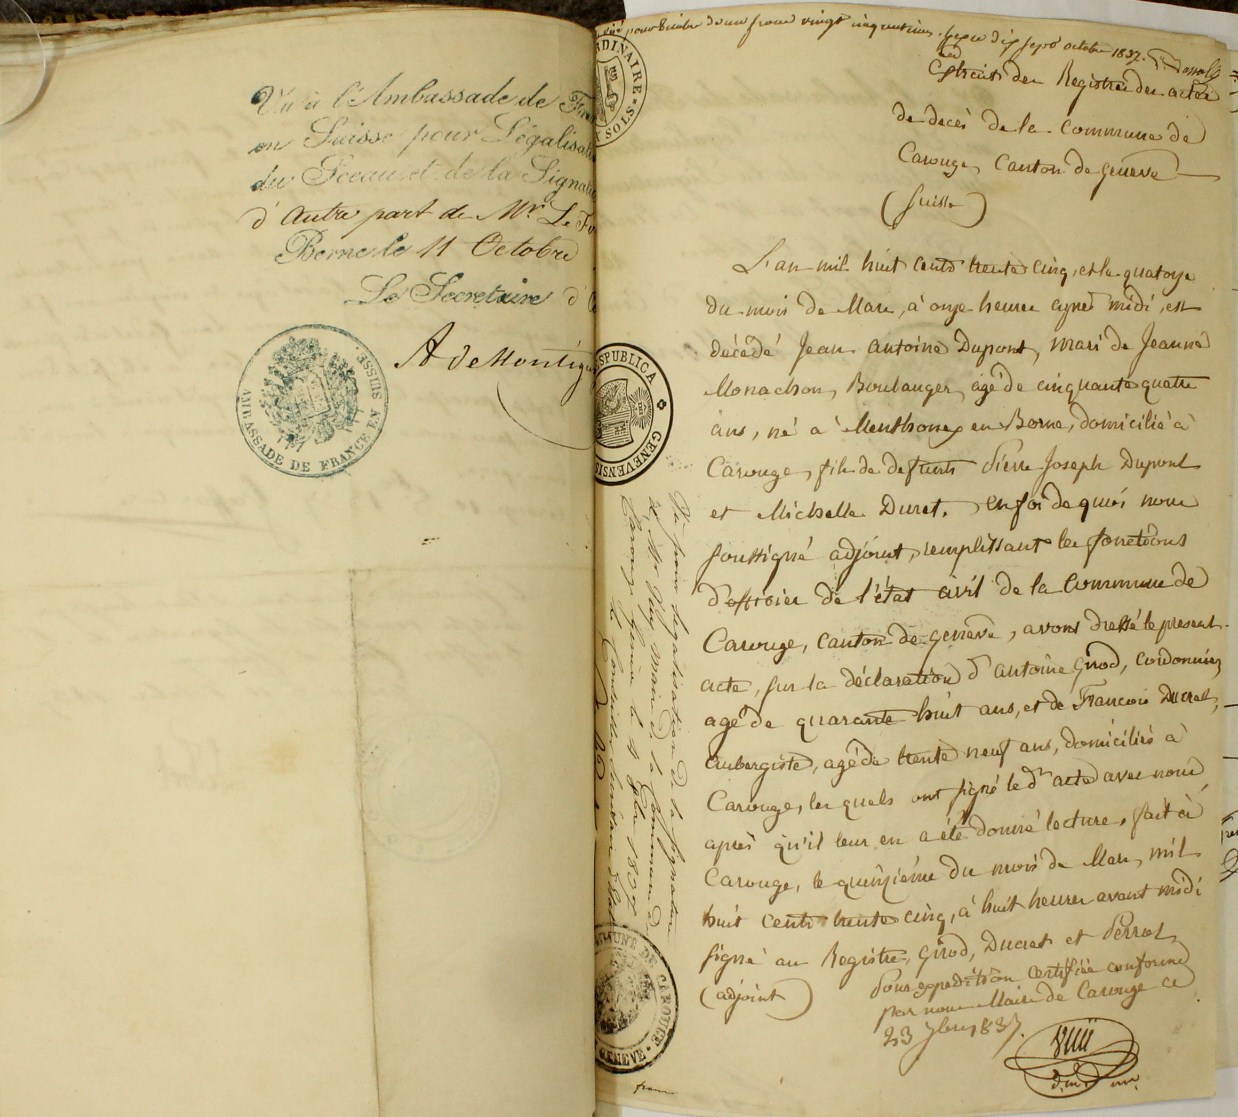 Vu à l'Ambassade de
en Suisse pour Légalisa
du Sceau et de la Signatu
d'autre part de Mr. Le
Berne le 11 Octobre
Le Secretaire d'
A de Montig
AMBASSADE DE FRANCE EN SUISSE
pour timbre d'un franc vingt cinq centimes. dix sept octobre 1837.
DINAIRE
SOLS
Extrait des Registres des actes
de decès de la Commune de
Carouge, Canton de Genève
(Suisse)
L'an mil huit cents trente cinq, et le quatorze
du mois de Mars, à onze heures après midi, est
décédé Jean Antoine Dupont, mari de Jeanne
Monachon, Boulanger, agé de cinquante quatre
ans, né à Menthonex en Borne, domicilié à
Carouge, fils de defunts Pierre Joseph Dupont
et Michelle Duret. en foi de quoi nous
soussigné adjoint, remplissant les fonctions
d'officier de l'état civil de la Commune de
Carouge, canton de genève, avons dressé le present
acte, sur la déclaration d'antoine Girod, cordonnier
agé de quarante huit ans, et de François Ducret,
aubergiste, agé de trente neuf ans, domiciliés à
Carouge, les quels ont signé le dt acte avec nous,
après qu'il leur en a été donné lecture, fait à
Carouge, le quinzième du mois de Mars, mil
huit cents trente cinq, à huit heures avant midi
signé au Registre, Girod, Ducret et Perrot
(adjoint)
Pour expédition certifiée conforme
par nous Maire de Carouge ce
23 7bre 1837.
RESPUBLICA GENEVENSIS
Vu pour légalisation de la signature
de Mr maire de la Commune de
Carouge Genève le 1837
Le Conseiller
COMMUNE DE CAROUGE
GENEVE